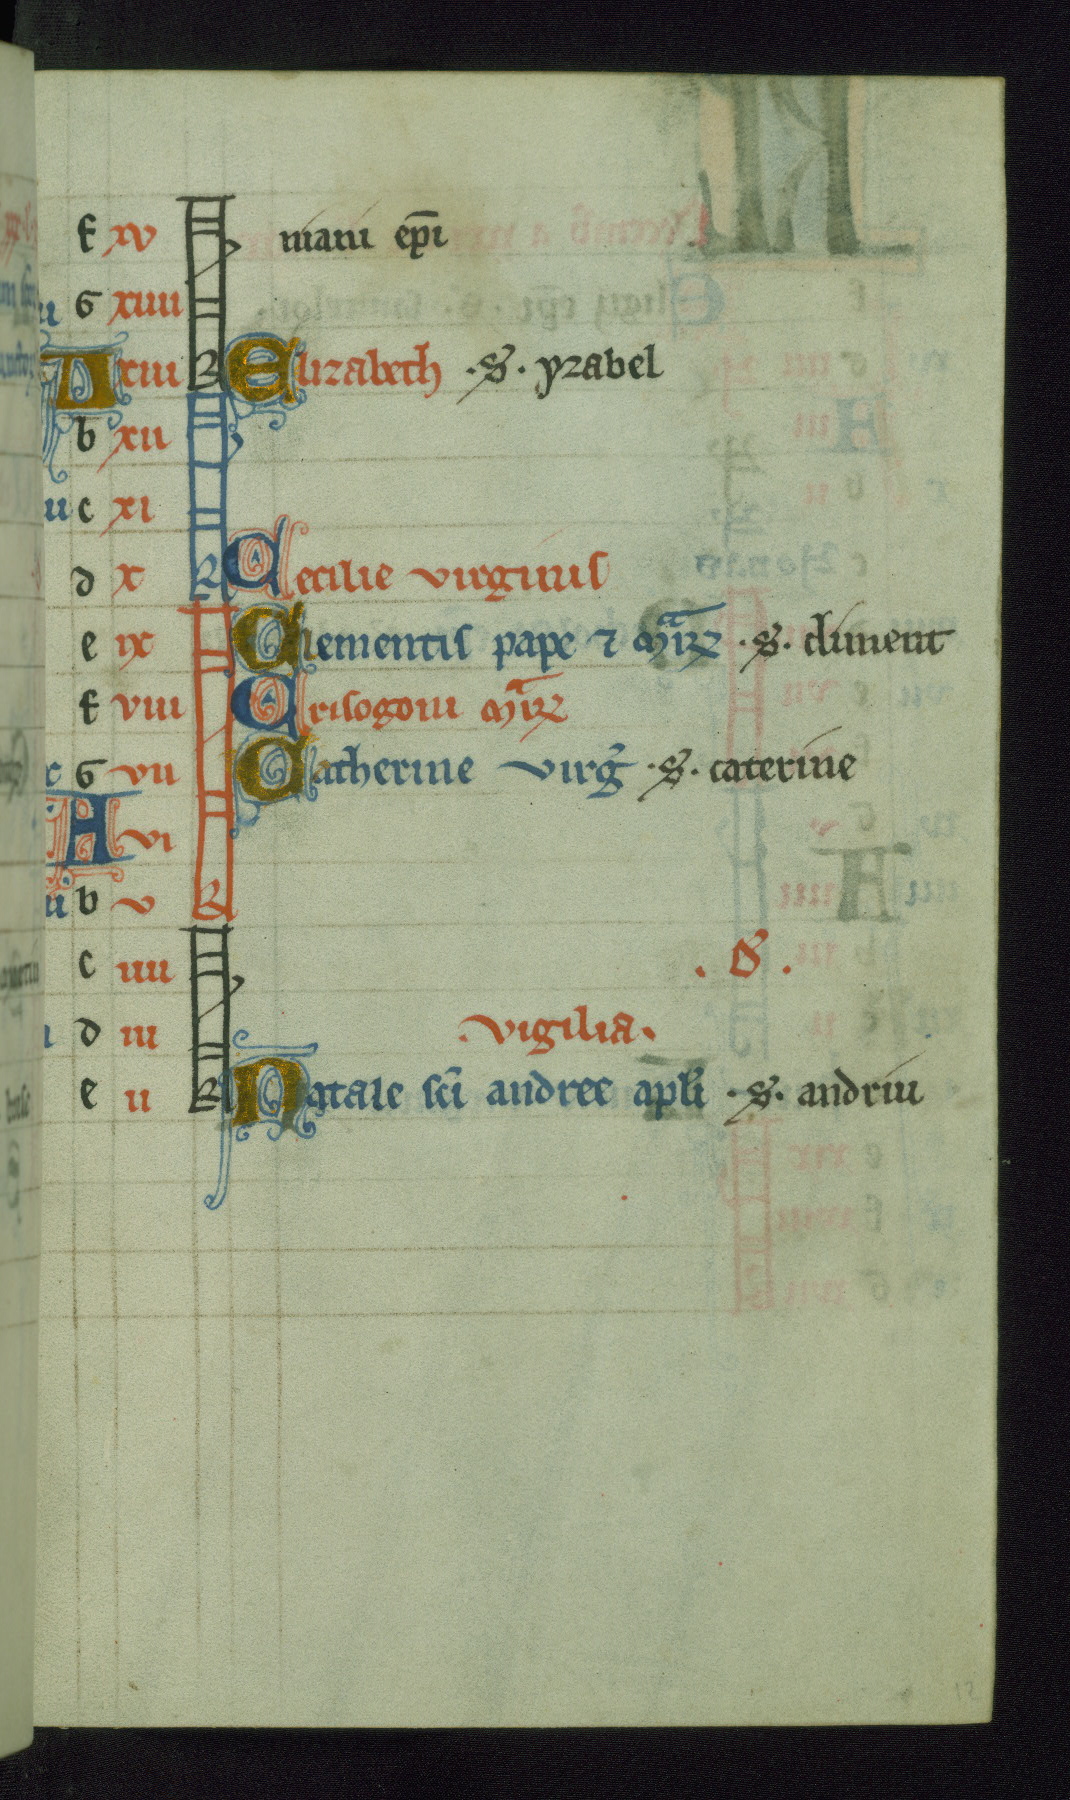 f xv mani ep̄i
G xiiii
A xiii kl Elizabeth ·S· yzabel
b xii
c xi
d x Cecilie virginis
e ix Clementis pape ⁊ mr̄ꝝ ·S· climent
f viii Crisogoni mr̄ꝝ
G vii Catherine virḡ ·S· caterine
A vi
b v
c iiii . D .
d iii ·vigilia·
e ii Natale sc̄i andree apl̄i ·S· andriu
12